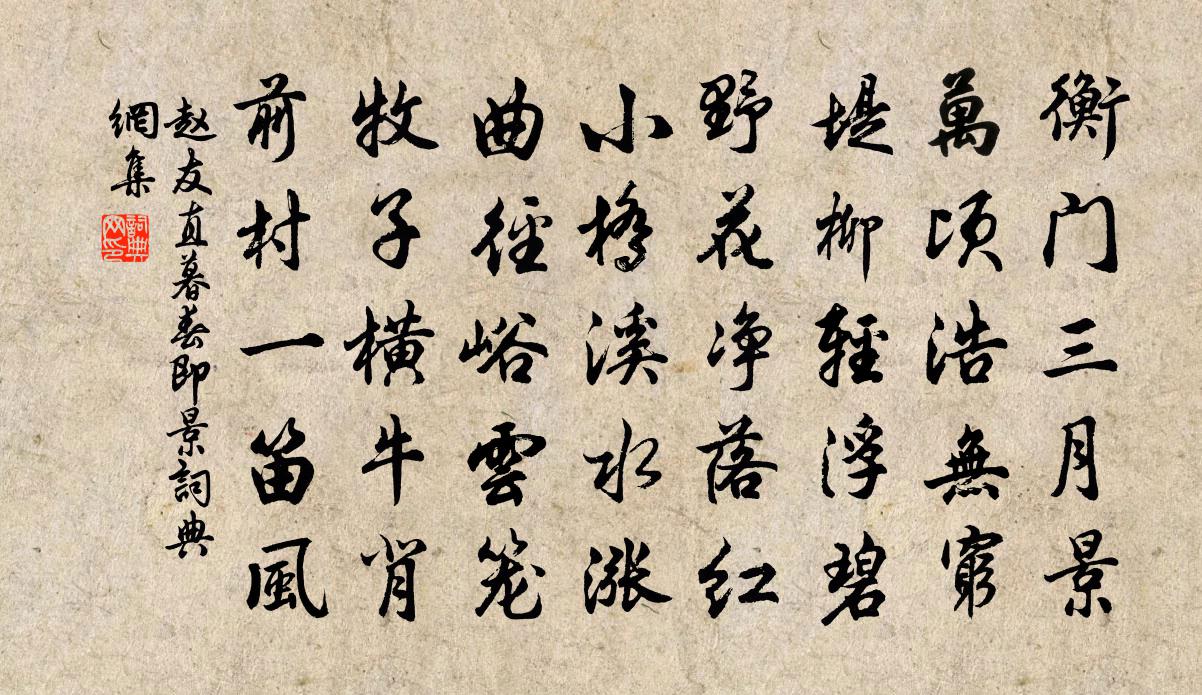 衡门三月景
萬顷浩無窮
堤柳輕浮碧
野花净落红
小橋溪水涨
曲徑峪雲笼
牧子横牛背
前村一笛風
赵友直暮春即景詞典
網集
詞典
网印